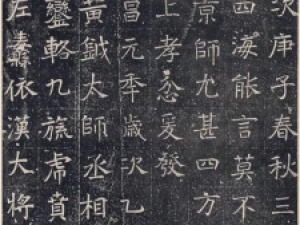 次庚子春秋三
四海能言莫不
京師尤甚四方
上孝爰發
昌元年歲次乙
黃鉞太師丞相
鑾輅九旒虎賁
左纛依漢大將